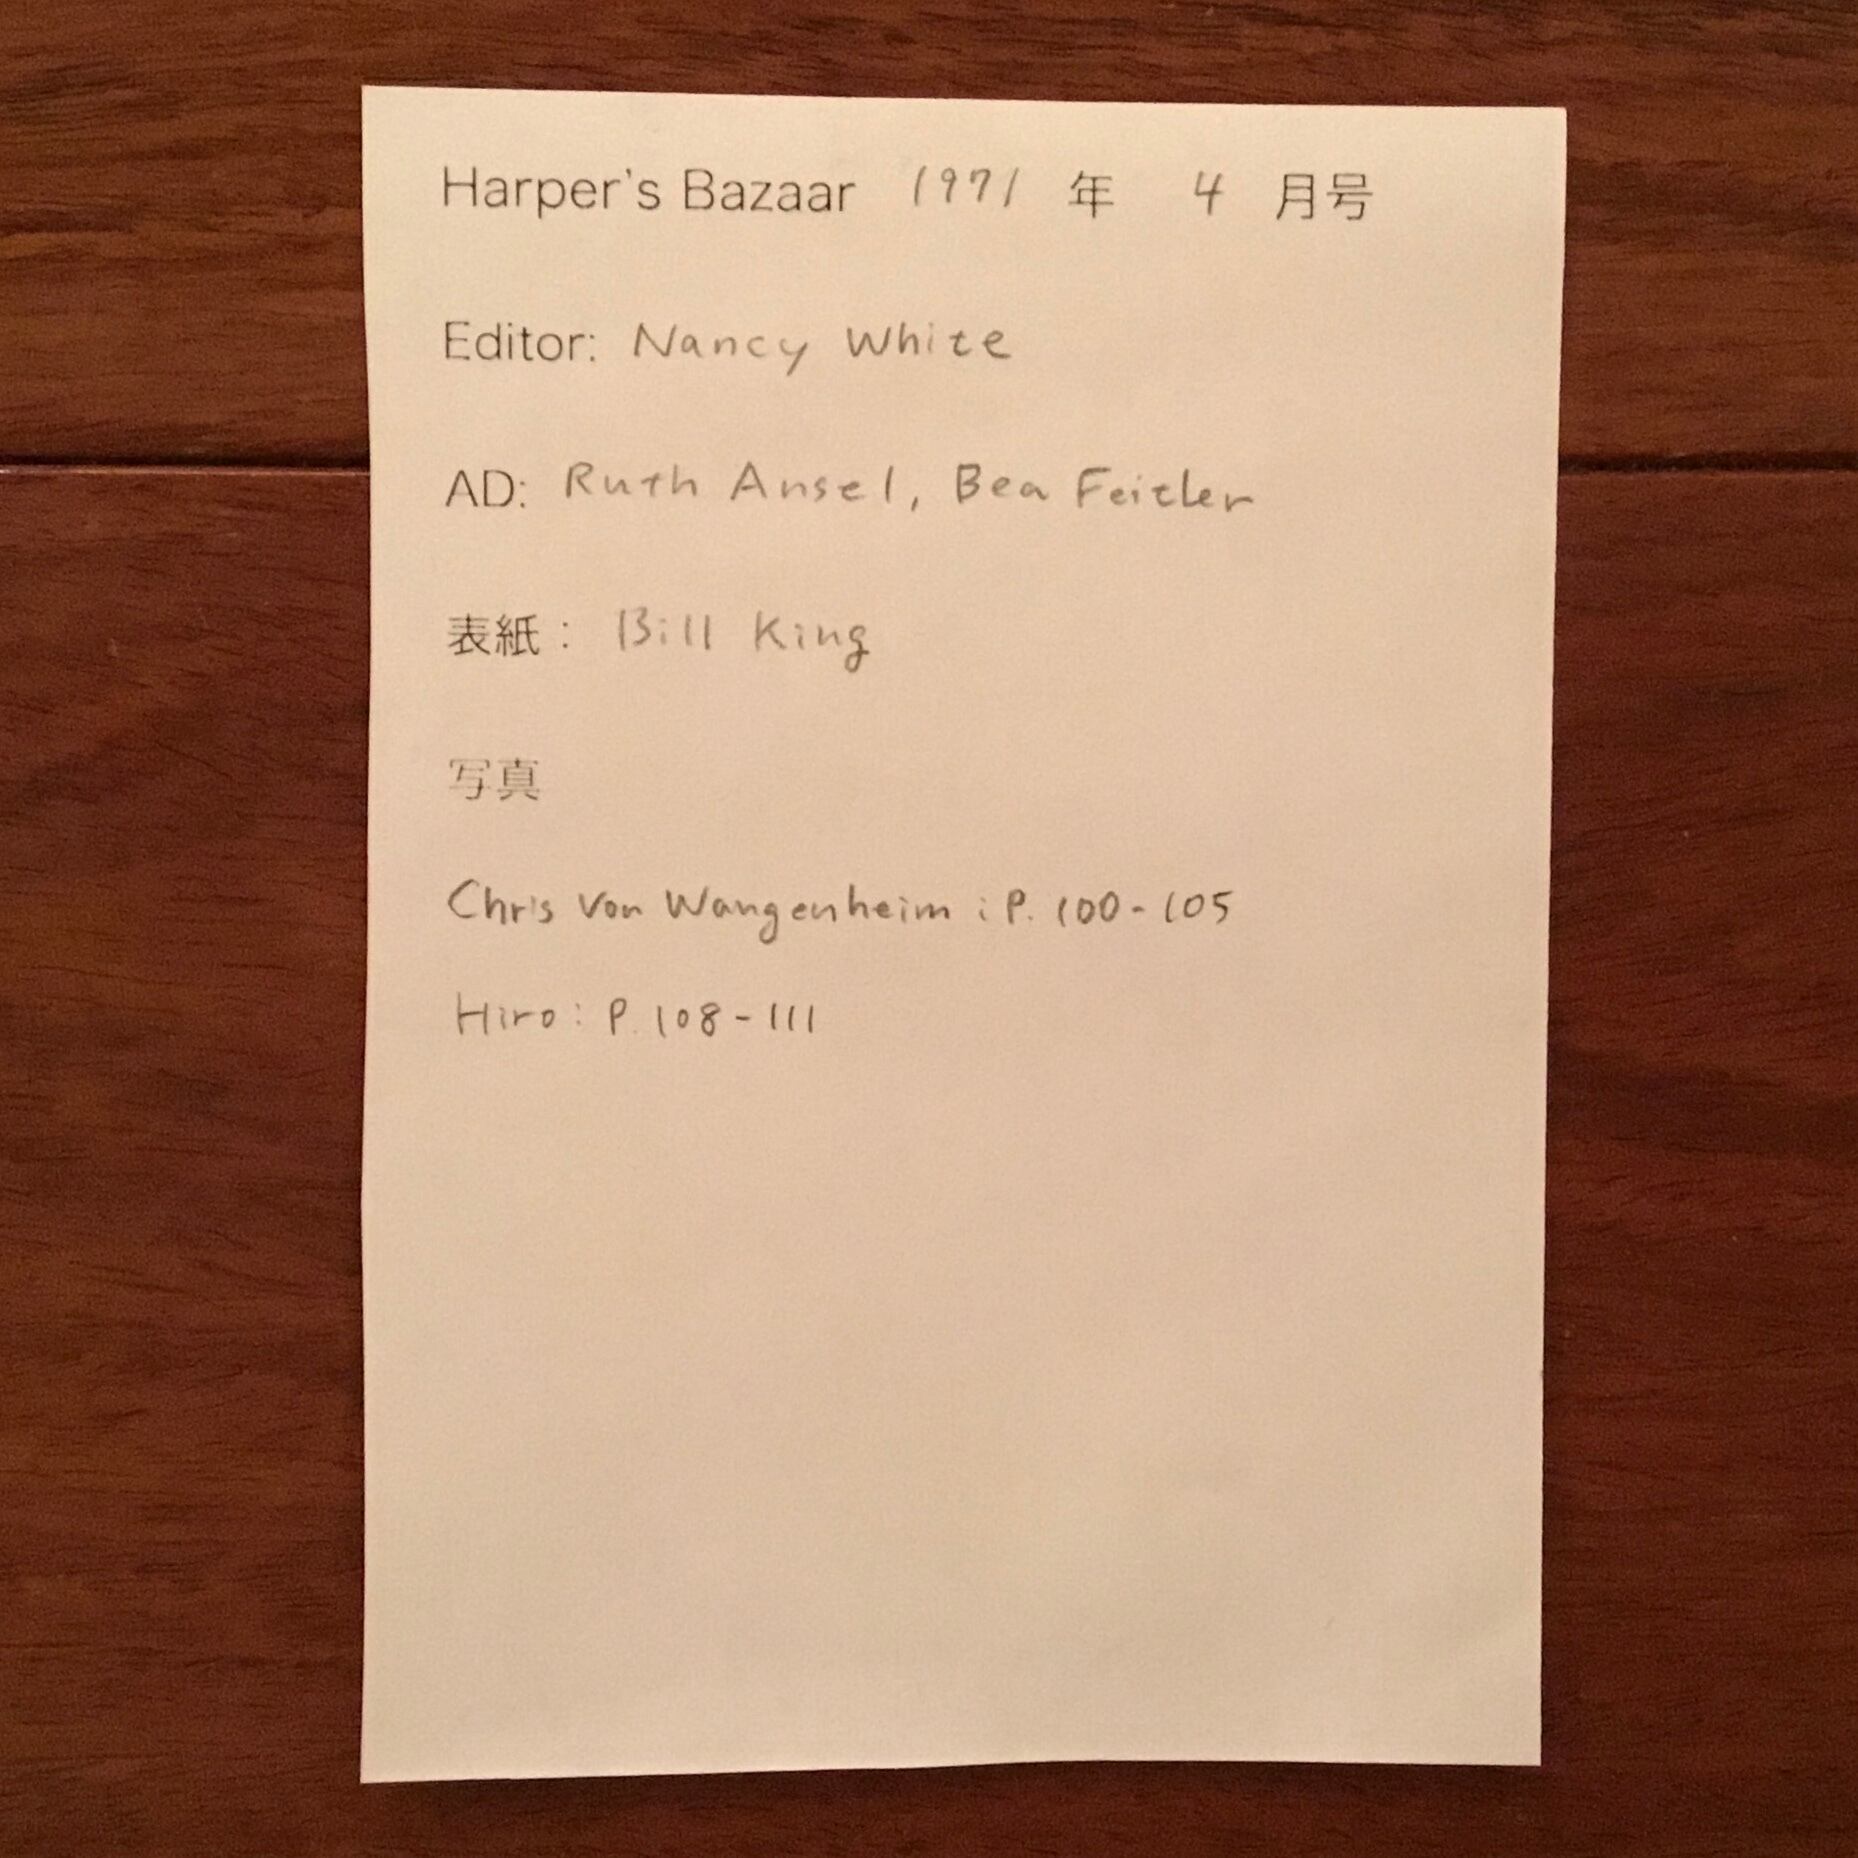 Harper's Bazaar 1971 年 4 月号
Editor: Nancy White
AD: Ruth Ansel, Bea Feitler
表紙： Bill King
写真
Chris Von Wangenheim : P. 100-105
Hiro: P. 108-111